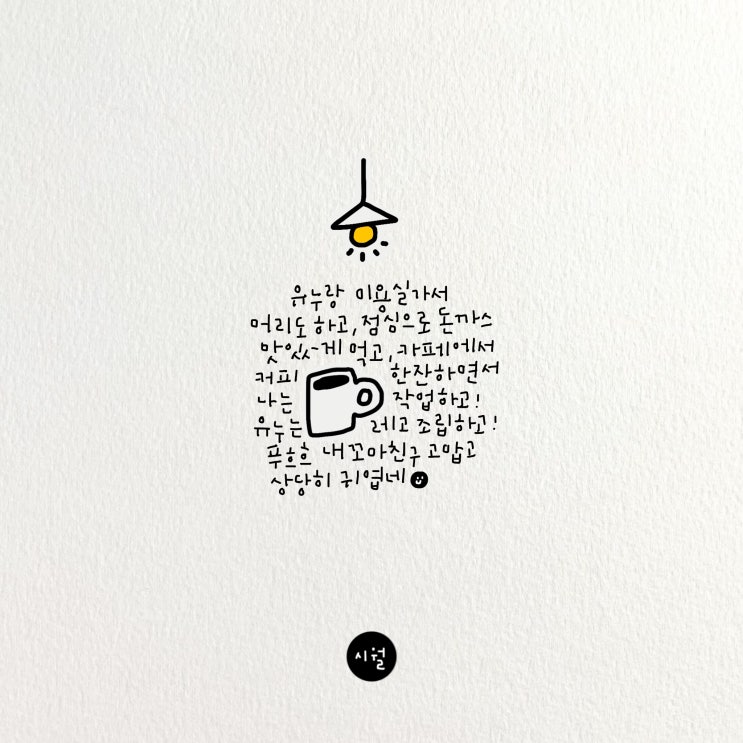 유누랑 미용실가서
머리도 하고, 점심으로 돈까스
맛있~게 먹고, 카페에서
커피 한잔하면서
나는 작업하고!
유누는 레고 조립하고!
푸흐흐 내 꼬마친구 고맙고
상당히 귀엽네
시월